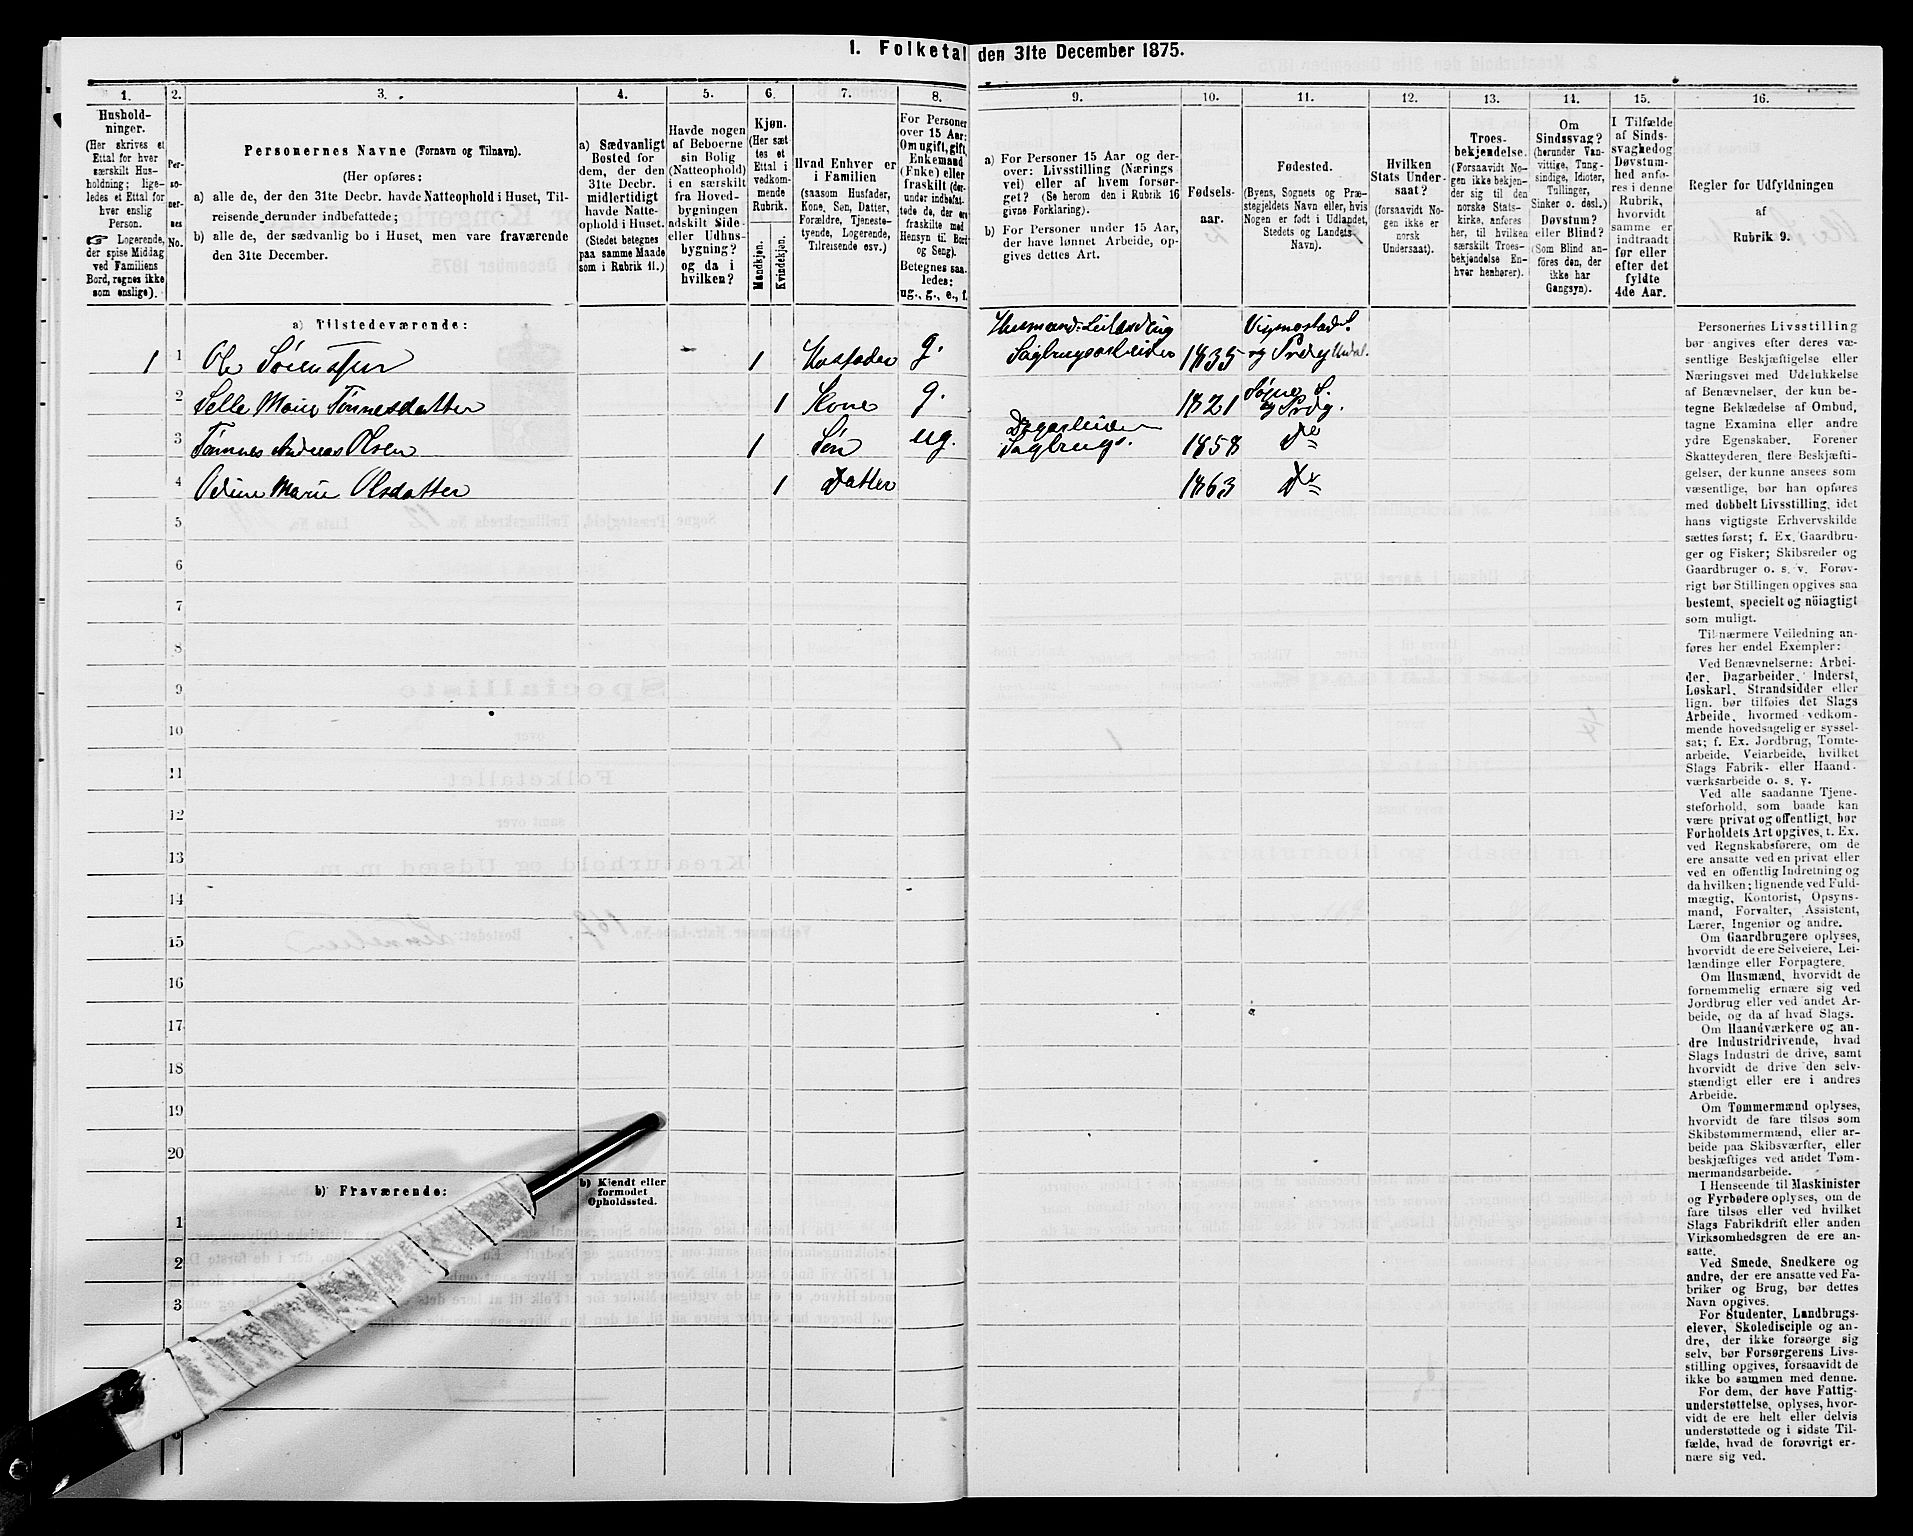 1. Folketal den 31te December 1875.
1.
Hushold-
ninger.
(Her skrives et
Ettal for hver
særskilt Hus-
holdning; lige-
ledes et Ettal for
hver enslig
Person.
☞ Logerende,
der spise Middag
ved Familiens
Bord, regnes ikke
som enslige).
2.
Per-
so-
ner-
nes
No.
3.
Personernes Navne (Fornavn og Tilnavn).
(Her opføres:
a) alle de, der den 31te Decbr. havde Natteophold i Huset, Til-
reisende derunder indbefattede;
b) alle de, der sædvanlig bo i Huset, men vare fraværende
den 31te December.
4.
a) Sædvanligt
Bosted for
dem, der den
31te Decbr.
midlertidigt
havde Natte-
ophold i Huset.
(Stedet betegnes
paa samme Maade
som i Rubrik 11.)
5.
Havde nogen
af Beboerne
sin Bolig
(Natteophold)
i en særskilt
fra Hoved-
bygningen
adskilt Side-
eller Udhus-
bygning?
og da i
hvilken?
6.
Kjøn.
(Her sæt-
tes et
Ettal i
vedkom-
mende
Rubrik.
Mandkjøn.
Kvindekjøn.
7.
Hvad Enhver er
i Familien
(saasom Husfader,
Kone, Søn, Datter,
Forældre, Tjeneste-
tyende, Logerende,
Tilreisende osv.)
8.
For Personer
over 15 Aar:
Om ugift, gift,
Enkemand
(Enke) eller
fraskilt (der-
under indbefat-
tede de, der ere
fraskilte med
Hensyn til Bord
og Seng).
Betegnes saa-
ledes:
ug., g., e., f.
9.
a) For Personer 15 Aar og der-
over: Livsstilling (Nærings-
vei) eller af hvem forsør-
get? (Se herom den i Rubrik 16
givne Forklaring).
b) For Personer under 15 Aar,
der have lønnet Arbeide, op-
gives dettes Art.
10.
Fødsels-
aar.
11.
Fødested.
(Byens, Sognets og Præ-
stegjeldets Navn eller, hvis
Nogen er født i Udlandet,
Stedets og Landets
Navn).
12.
Hvilken
Stats Under-
saat?
(forsaavidt No-
gen ikke er
norsk
Undersaat).
13.
Troes-
bekjendelse.
(Forsaavidt No-
gen ikke bekjen-
der sig til den
norske Stats-
kirke, anføres
her, til hvilken
særskilt Troes-
bekjendelse En-
hver henhører).
14.
Om
Sindssvag?
(herunder Van-
vittige, Tung-
sindige, Idioter,
Tullinger,
Sinker o. desl.)
Døvstum?
eller Blind?
(Som Blind an-
føres den, der
ikke har
Gangsyn).
15.
I Tilfælde
af Sinds-
svaghed og
Døvstum-
hed anfø-
res i denne
Rubrik,
hvorvidt
samme er
indtraadt
før eller
efter det
fyldte
4de Aar.
16.
Regler for Udfyldningen
af
Rubrik 9.
a) Tilstedeværende:
1 1 Ole Sørensen 1 Husfader g. Husmand: Leilænding Sagbrugsarbeider 1835 Vigmostad S. og Prdg Undal.
2 Selle Marie Tønnesdatter 1 Kone g. 1821 Søgne S. og Prdg.
3 Tønnes Andreas Olsen 1 Søn ug. Dagarbeider Sagbrug. 1858 Do
4 Odine Marie Olsdatter 1 Datter 1863 Do
5
6
7
8
9
10
11
12
13
14
15
16
17
18
19
20
b) Fraværende:
b) Kjendt eller
formodet
Opholdssted.
1
2
3
Personernes Livsstilling
bør angives efter deres væ-
sentlige Beskjæftigelse eller
Næringsvei med Udelukkelse
af Benævnelser, der kun be-
tegne Beklædelse af Ombud,
tagne Examina eller andre
ydre Egenskaber. Forener
Skatteyderen flere Beskjæfti-
gelser, der kunne ansees som
væsentlige, bør han opføres
med dobbelt Livsstilling, idet
hans vigtigste Erhvervskilde
sættes først; f. Ex. Gaardbru-
ger og Fisker; Skibsreder og
Gaardbruger o. s. v. Forøv-
rigt bør Stillingen opgives saa
bestemt, specielt og nöiagtigt
som muligt.
Til nærmere Veiledning an-
føres her endel Exempler:
Ved Benævnelserne: Arbei-
der, Dagarbeider, Inderst,
Løskarl, Strandsidder eller
lign. bør tilføies det Slags
Arbeide, hvormed vedkom-
mende hovedsagelig er syssel-
sat; f. Ex. Jordbrug, Tomte-
arbeide, Veiarbeide, hvilket
Slags Fabrik- eller Haand-
værksarbeide o. s. v.
Ved alle saadanne Tjene-
steforhold, som baade kan
være privat og offentligt, bør
Forholdets Art opgives, t. Ex.
ved Regnskabsførere, om de
ere ansatte ved en privat eller
ved en offentlig Indretning og
da hvilken; lignende ved Fuld-
mægtig, Kontorist, Opsyns-
mand, Forvalter, Assistent,
Lærer, Ingeniør og andre.
Om Gaardbrugere oplyses,
hvorvidt de ere Selveiere, Lei-
lændinge eller Forpagtere.
Om Husmænd, hvorvidt de
fornemmelig ernære sig ved
Jordbrug eller ved andet Ar-
beide, og da af hvad Slags.
Om Haandværkere og an-
dre Industridrivende, hvad
Slags Industri de drive, samt
hvorvidt de drive den selv-
stændigt eller ere i andres
Arbeide.
Om Tømmermænd oplyses,
hvorvidt de fare tilsøs som
Skibstømmermænd, eller ar-
beide paa Skibsværfter, eller
beskjæftiges ved andet Tøm-
mermandsarbeide.
I Henseende til Maskinister
og Fyrbødere oplyses, om de
fare tilsøs eller ved hvilket
Slags Fabrikdrift eller anden
Virksomhedsgren de ere an-
satte.
Ved Smede, Snedkere og
andre, der ere ansatte ved Fa-
briker og Brug, bør dettes
Navn opgives.
For Studenter, Landbrugs-
elever, Skoledisciple og an-
dre, der ikke forsørge sig
selv, bør Forsørgerens Livs-
stilling opgives, forsaavidt de
ikke bo sammen med denne.
For dem, der have Fattig-
understøttelse, oplyses, hvor-
vidt de ere helt eller delvis
understøttede og i sidste Til-
fælde, hvad de forøvrigt er-
nære sig ved.